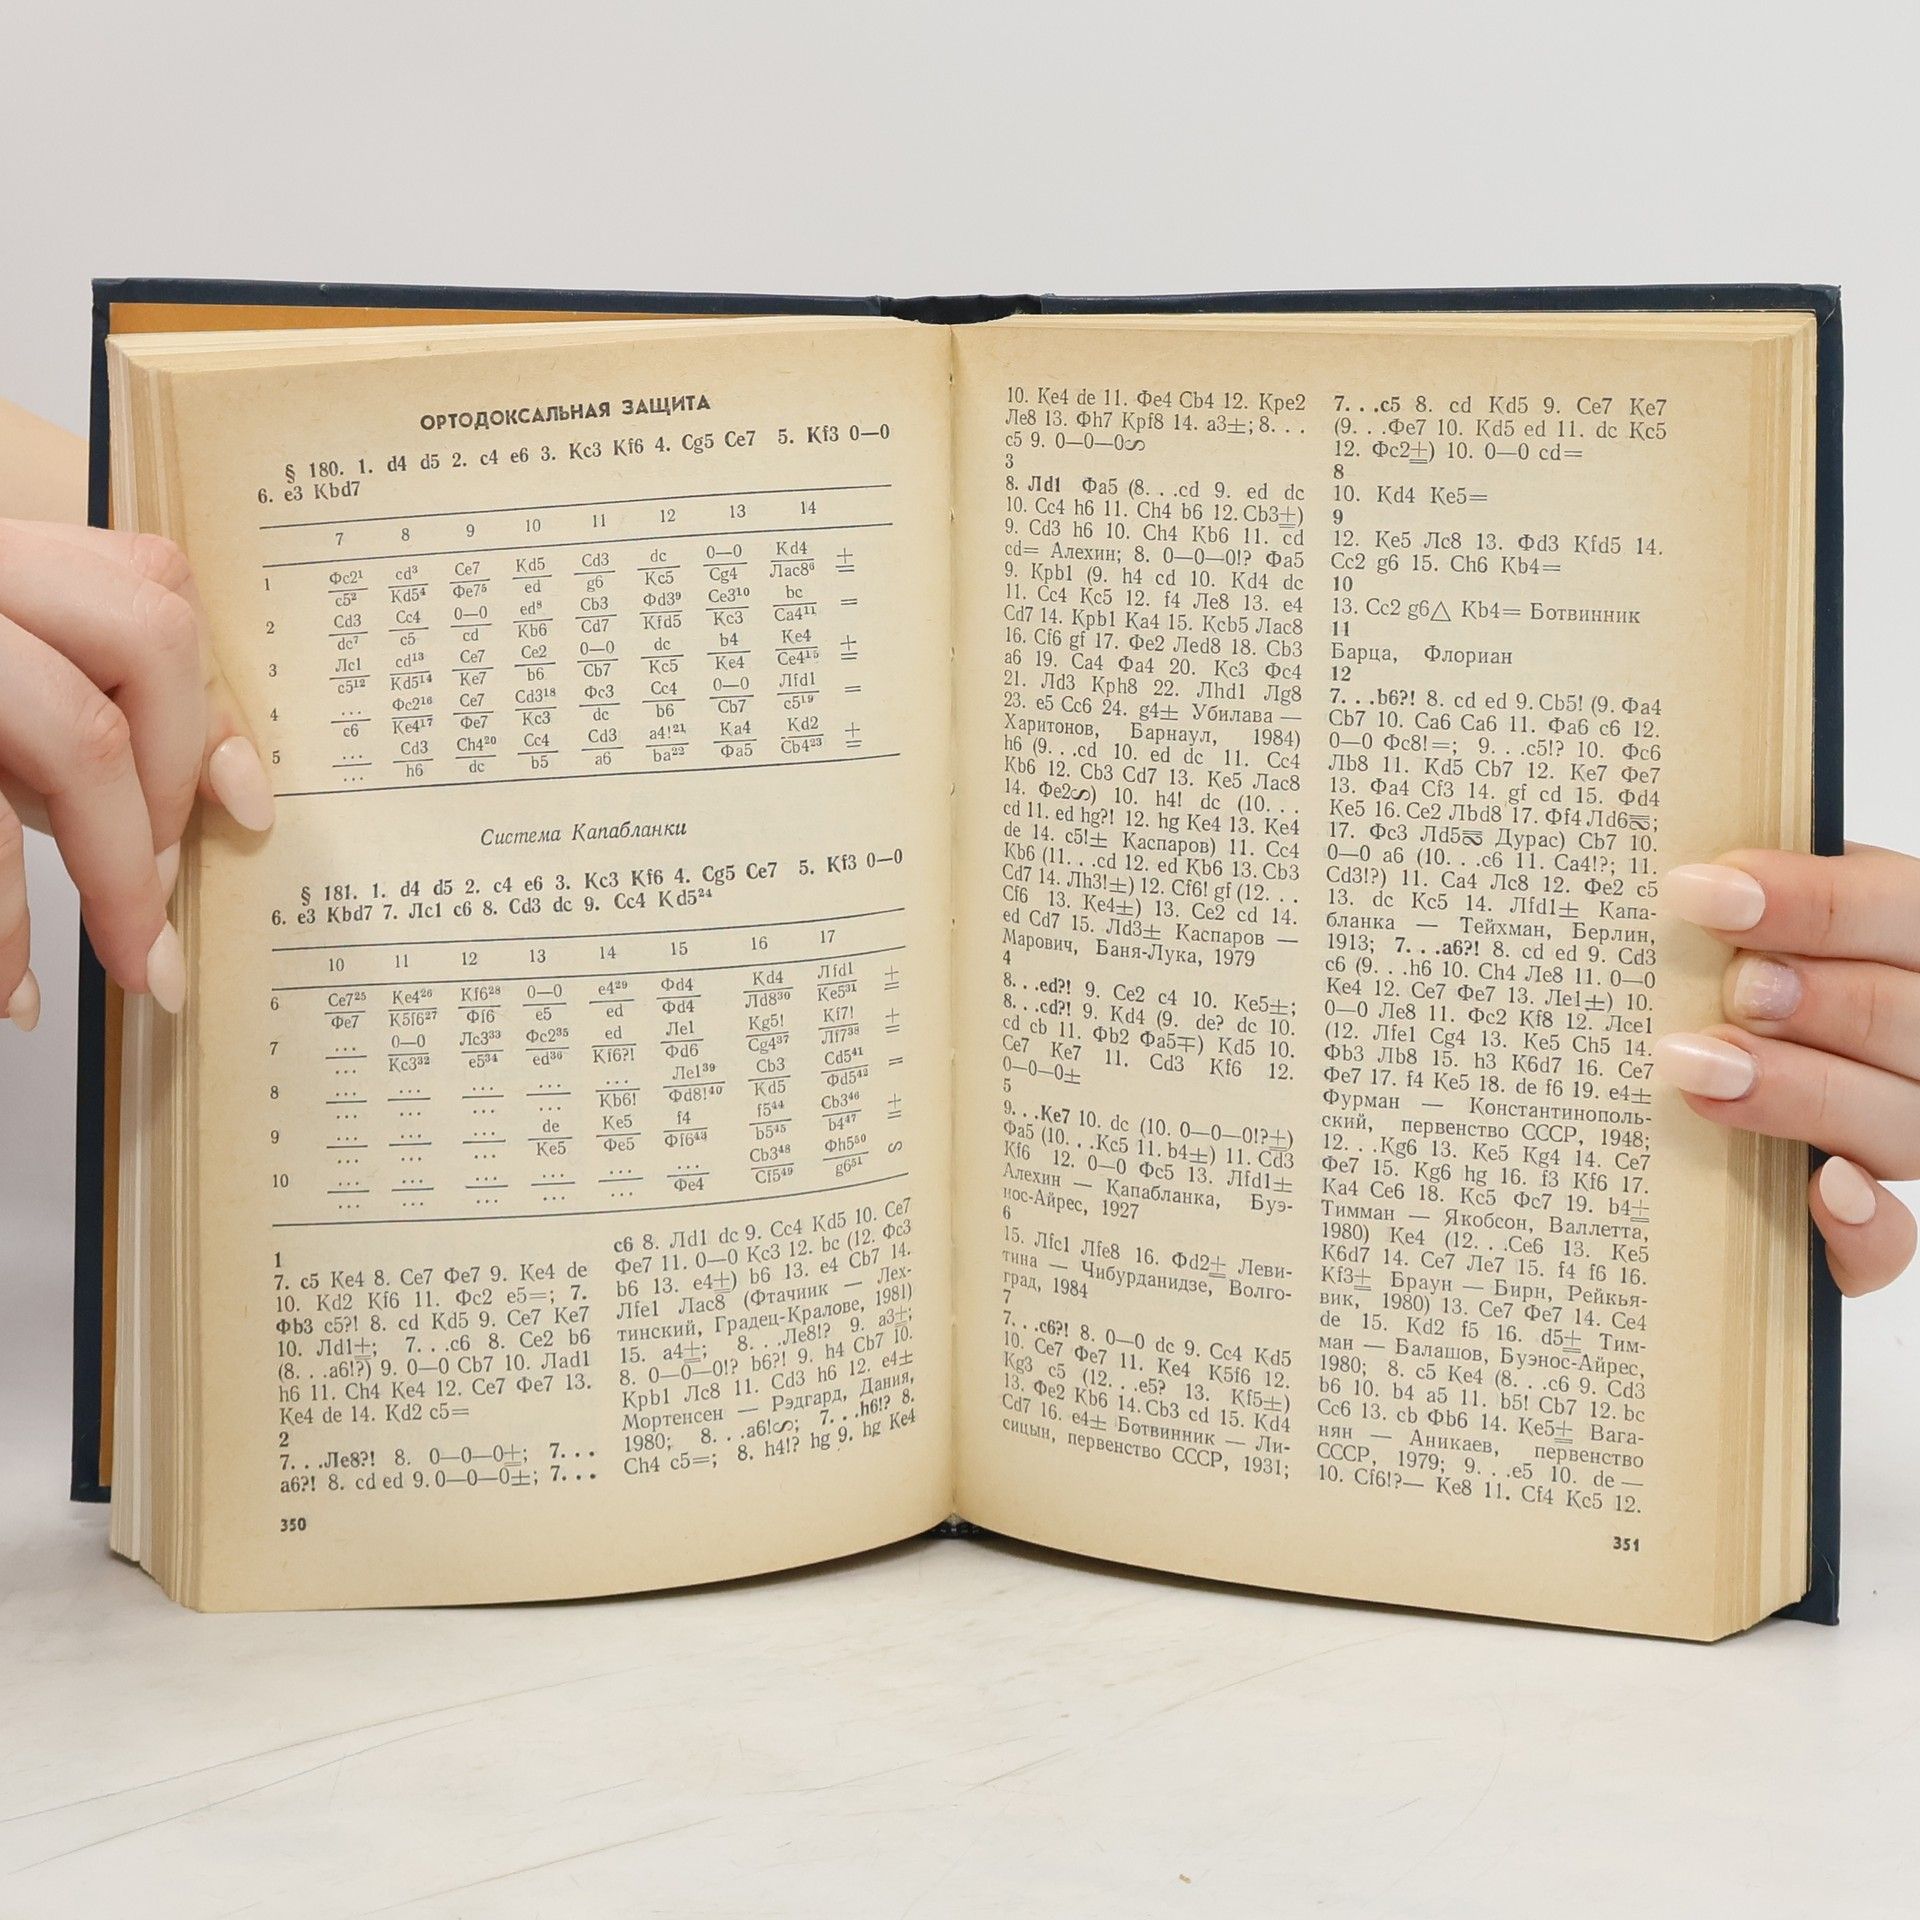 ОРТОДОКСАЛЬНАЯ ЗАЩИТА
§ 180. 1. d4 d5 2. c4 e6 3. Кc3 Кf6 4. Сg5 Сe7 5. Кf3 0—0
6. e3 Кbd7
7 8 9 10 11 12 13 14
1 Фc2¹ cd³ Сe7 Кd5 Сd3 dc 0—0 Кd4 ±
c5² Кd5⁴ Фe7⁵ ed g6 Кc5 Сg4 Лac8⁶
2 Сd3 Сc4 0—0 ed⁸ Сb3 Фd3⁹ Сe3¹⁰ bc =
dc⁷ c5 cd Кb6 Сd7 Кfd5 Кc3 Сa4¹¹
3 Лc1 cd¹³ Сe7 Сe2 0—0 dc b4 Кe4 ±
c5¹² Кd5¹⁴ Кe7 b6 Сb7 Кc5 Кe4 Сe4¹⁵
4 ... Фc2¹⁶ Сe7 Сd3¹⁸ Фc3 Сc4 0—0 Лfd1 =
c6 Кe4¹⁷ Фe7 Кc3 dc b6 Сb7 c5¹⁹
5 ... Сd3 Сh4²⁰ Сc4 Сd3 a4!²¹ Кa4 Кd2 ±
... h6 dc b5 a6 ba²² Фa5 Сb4²³
Система Капабланки
§ 181. 1. d4 d5 2. c4 e6 3. Кc3 Кf6 4. Сg5 Сe7 5. Кf3 0—0
6. e3 Кbd7 7. Лc1 c6 8. Сd3 dc 9. Сc4 Кd5²⁴
10 11 12 13 14 15 16 17
6 Сe7²⁵ Кe4²⁶ Кf6²⁸ 0—0 e4²⁹ Фd4 Кd4 Лfd1 ±
Фe7 К5f6²⁷ Фf6 e5 ed Фd4 Лd8³⁰ Кe5³¹
7 ... 0—0 Лc3³³ Фc2³⁵ ed Лe1 Кg5! Кf7! ±
... Кc3³² e5³⁴ ed³⁶ Кf6?! Фd6 Сg4³⁷ Лf7³⁸
8 ... ... ... ... ... Лe1³⁹ Сb3 Сd5⁴¹ =
... ... ... ... Кb6! Фd8!⁴⁰ Кd5 Фd5⁴²
9 ... ... ... de Кe5 f4 f5⁴⁴ Сb3⁴⁶ ±
... ... ... Кe5 Фe5 Фf6⁴³ b5⁴⁵ b4⁴⁷
10 ... ... ... ... ... ... Сb3⁴⁸ Фh5⁵⁰ ∽
... ... ... ... ... Фe4 Сf5⁴⁹ g6⁵¹
1
7. c5 Кe4 8. Сe7 Фe7 9. Кe4 de
10. Кd2 Кf6 11. Фc2 e5=; 7.
Фb3 c5?! 8. cd Кd5 9. Сe7 Кe7
10. Лd1±; 7...c6 8. Сe2 b6
(8. . .a6!?) 9. 0—0 Сb7 10. Лad1
h6 11. Сh4 Кe4 12. Сe7 Фe7 13.
Кe4 de 14. Кd2 c5=
2
7. . .Лe8?! 8. 0—0—0±; 7. . .
a6?! 8. cd ed 9. 0—0—0±; 7. . .
c6 8. Лd1 dc 9. Сc4 Кd5 10. Сe7
Фe7 11. 0—0 Кc3 12. bc (12. Фc3
b6 13. e4±) b6 13. e4 Сb7 14.
Лfe1 Лac8 (Фтачник — Лех-
тинский, Градец-Кралове, 1981)
15. a4±; 8. . .Лe8!? 9. a3±;
8. 0—0—0!? b6?! 9. h4 Сb7 10.
Крb1 Лc8 11. Сd3 h6 12. e4±
Мортенсен — Рэдгард, Дания,
1980; 8. . .a6!∽; 7. . .h6!? 8.
Сh4 c5=; 8. h4!? hg 9. hg Кe4
350
10. Кe4 de 11. Фe4 Сb4 12. Крe2
Лe8 13. Фh7 Крf8 14. a3±; 8. . .
c5 9. 0—0—0∽
3
8. Лd1 Фa5 (8. . .cd 9. ed dc
10. Сc4 h6 11. Сh4 b6 12. Сb3±)
9. Сd3 h6 10. Сh4 Кb6 11. cd
cd= Алехин; 8. 0—0—0!? Фa5
9. Крb1 (9. h4 cd 10. Кd4 dc
11. Сc4 Кc5 12. f4 Лe8 13. e4
Сd7 14. Крb1 Кa4 15. Кcb5 Лac8
16. Сf6 gf 17. Фe2 Лed8 18. Сb3
a6 19. Сa4 Фa4 20. Кc3 Фc4
21. Лd3 Крh8 22. Лhd1 Лg8
23. e5 Сc6 24. g4± Убилава —
Харитонов, Барнаул, 1984)
h6 (9. . .cd 10. ed dc 11. Сc4
Кb6 12. Сb3 Сd7 13. Кe5 Лac8
14. Фe2∽) 10. h4! dc (10. . .
cd 11. ed hg?! 12. hg Кe4 13. Кe4
de 14. c5!± Каспаров) 11. Сc4
Кb6 (11. . .cd 12. ed Кb6 13. Сb3
Сd7 14. Лh3!±) 12. Сf6! gf (12. . .
Сf6 13. Кe4±) 13. Сe2 cd 14.
ed Сd7 15. Лd3± Каспаров —
Марович, Баня-Лука, 1979
4
8. . .ed?! 9. Сe2 c4 10. Кe5±;
8. . .cd?! 9. Кd4 (9. de? dc 10.
cd cb 11. Фb2 Фa5∓) Кd5 10.
Сe7 Кe7 11. Сd3 Кf6 12.
0—0—0±
5
9. . .Кe7 10. dc (10. 0—0—0!?±)
Фa5 (10. . .Кc5 11. b4±) 11. Сd3
Кf6 12. 0—0 Фc5 13. Лfd1±
Алехин — Капабланка, Буэ-
нос-Айрес, 1927
6
15. Лfc1 Лfe8 16. Фd2± Леви-
тина — Чибурданидзе, Волго-
град, 1984
7
7. . .c6?! 8. 0—0 dc 9. Сc4 Кd5
10. Сe7 Фe7 11. Кe4 К5f6 12.
Кg3 c5 (12. . .e5? 13. Кf5±)
13. Фe2 Кb6 14. Сb3 cd 15. Кd4
Сd7 16. e4± Ботвинник — Ли-
сицын, первенство СССР, 1931;
7. . .c5 8. cd Кd5 9. Сe7 Кe7
(9. . .Фe7 10. Кd5 ed 11. dc Кc5
12. Фc2±) 10. 0—0 cd=
8
10. Кd4 Кe5=
9
12. Кe5 Лc8 13. Фd3 Кfd5 14.
Сc2 g6 15. Сh6 Кb4=
10
13. Сc2 g6△ Кb4= Ботвинник
11
Барца, Флориан
12
7. . .b6?! 8. cd ed 9. Сb5! (9. Фa4
Сb7 10. Сa6 Сa6 11. Фa6 c6 12.
0—0 Фc8!=; 9. . .c5!? 10. Фc6
Лb8 11. Кd5 Сb7 12. Кe7 Фe7
13. Фa4 Сf3 14. gf cd 15. Фd4
Кe5 16. Сe2 Лbd8 17. Фf4 Лd6⯹;
17. Фc3 Лd5⯹ Дурас) Сb7 10.
0—0 a6 (10. . .c6 11. Сa4!?; 11.
Сd3!?) 11. Сa4 Лc8 12. Фe2 c5
13. dc Кc5 14. Лfd1± Капа-
бланка — Тейхман, Берлин,
1913; 7. . .a6?! 8. cd ed 9. Сd3
c6 (9. . .h6 10. Сh4 Лe8 11. 0—0
Кe4 12. Сe7 Фe7 13. Лe1±) 10.
0—0 Лe8 11. Фc2 Кf8 12. Лce1
(12. Лfe1 Сg4 13. Кe5 Сh5 14.
Фb3 Лb8 15. h3 К6d7 16. Сe7
Фe7 17. f4 Кe5 18. de f6 19. e4±
Фурман — Константинополь-
ский, первенство СССР, 1948;
12. . .Кg6 13. Кe5 Кg4 14. Сe7
Фe7 15. Кg6 hg 16. f3 Кf6 17.
Кa4 Сe6 18. Кc5 Фc7 19. b4±
Тимман — Якобсон, Валлетта,
1980) Кe4 (12. . .Сe6 13. Кe5
К6d7 14. Сe7 Лe7 15. f4 f6 16.
Кf3± Браун — Бирн, Рейкья-
вик, 1980) 13. Сe7 Фe7 14. Сe4
de 15. Кd2 f5 16. d5± Тим-
ман — Балашов, Буэнос-Айрес,
1980; 8. c5 Кe4 (8. . .c6 9. Сd3
b6 10. b4 a5 11. b5! Сb7 12. bc
Сc6 13. cb Фb6 14. Кe5± Вага-
нян — Аникаев, первенство
СССР, 1979; 9. . .e5 10. de —
10. Сf6!?— Кe8 11. Сf4 Кc5 12.
351